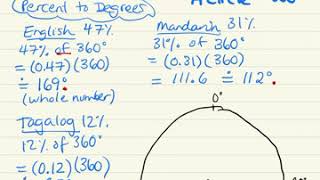 (Percent to Degrees)
English 47%
47% of 360°
= (0.47)(360)
≐ 169°.
(whole number)
Mandarin 31%
31% of 360°
= (0.31)(360)
= 111.6 ≐ 112°.
Tagalog 12%
12% of 360°
= (0.12)(360)
0°